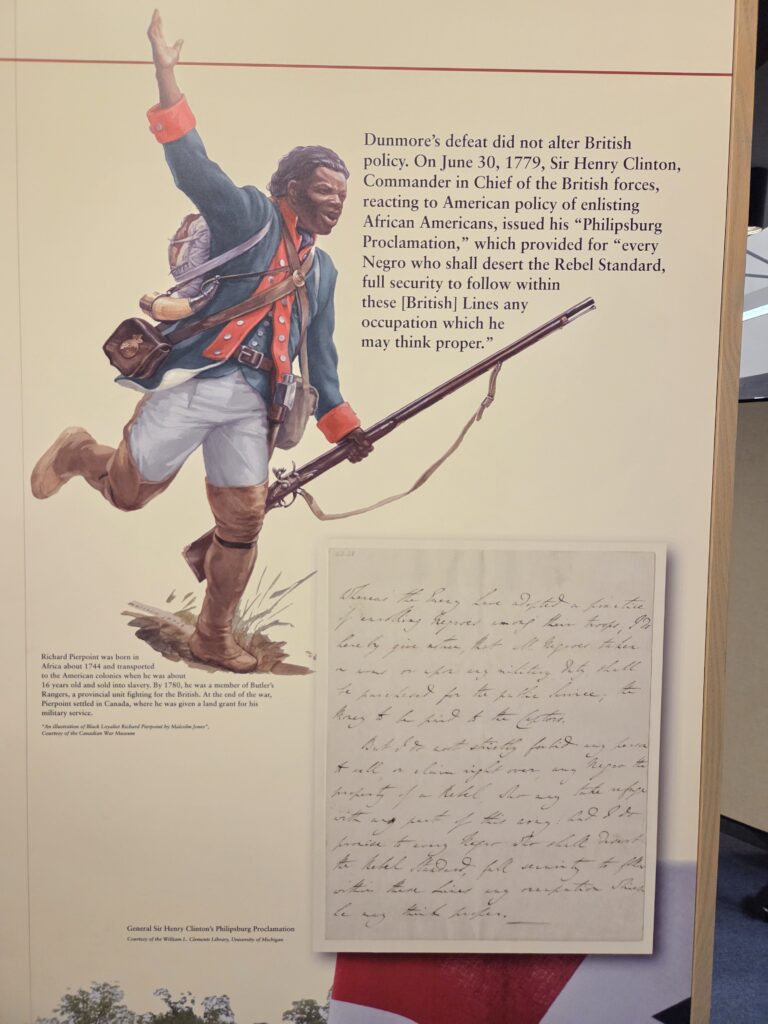 Dunmore's defeat did not alter British
policy. On June 30, 1779, Sir Henry Clinton,
Commander in Chief of the British forces,
reacting to American policy of enlisting
African Americans, issued his "Philipsburg
Proclamation," which provided for "every
Negro who shall desert the Rebel Standard,
full security to follow within
these [British] Lines any
occupation which he
may think proper."
Richard Pierpoint was born in
Africa about 1744 and transported
to the American colonies when he was about
16 years old and sold into slavery. By 1780, he was a member of Butler's
Rangers, a provincial unit fighting for the British. At the end of the war,
Pierpoint settled in Canada, where he was given a land grant for his
military service.
"An illustration of Black Loyalist Richard Pierpoint by Malcolm Jones",
Courtesy of the Canadian War Museum
Whereas the Enemy have adopted a practice
of enrolling Negroes among their troops, I do
hereby give notice, that all Negroes taken
in arms or upon any military duty shall
be purchased for the public Service; the
Money to be paid to the Captors.
But I do most strictly forbid any person
to sell, or claim right over, any Negro the
property of a Rebel, who may take refuge
with any part of this army: And I do
promise to every Negro who shall desert
the Rebel Standard, full security to follow
within these Lines any occupation which
he may think proper.
General Sir Henry Clinton's Philipsburg Proclamation
Courtesy of the William L. Clements Library, University of Michigan